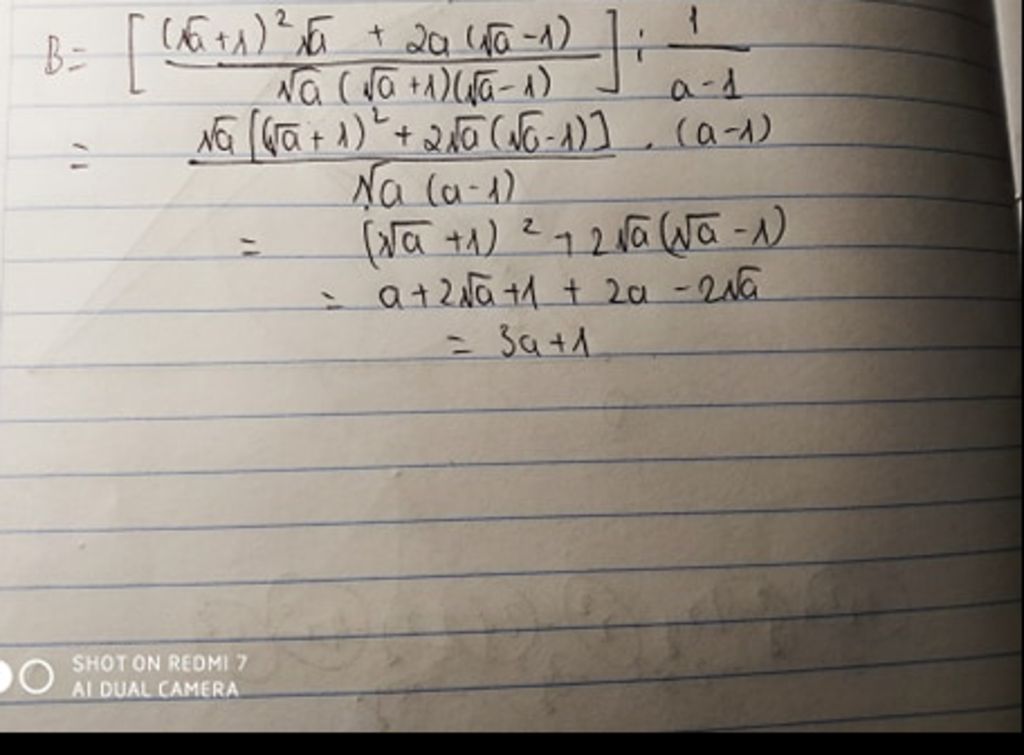 B = [ ((√a+1)²√a + 2a(√a-1)) / (√a(√a+1)(√a-1)) ] : 1/(a-1)
= √a[(√a+1)² + 2√a(√a-1)] / (√a(a-1)) . (a-1)
= (√a+1)² + 2√a(√a-1)
= a+2√a+1 + 2a - 2√a
= 3a+1
SHOT ON REDMI 7
AI DUAL CAMERA